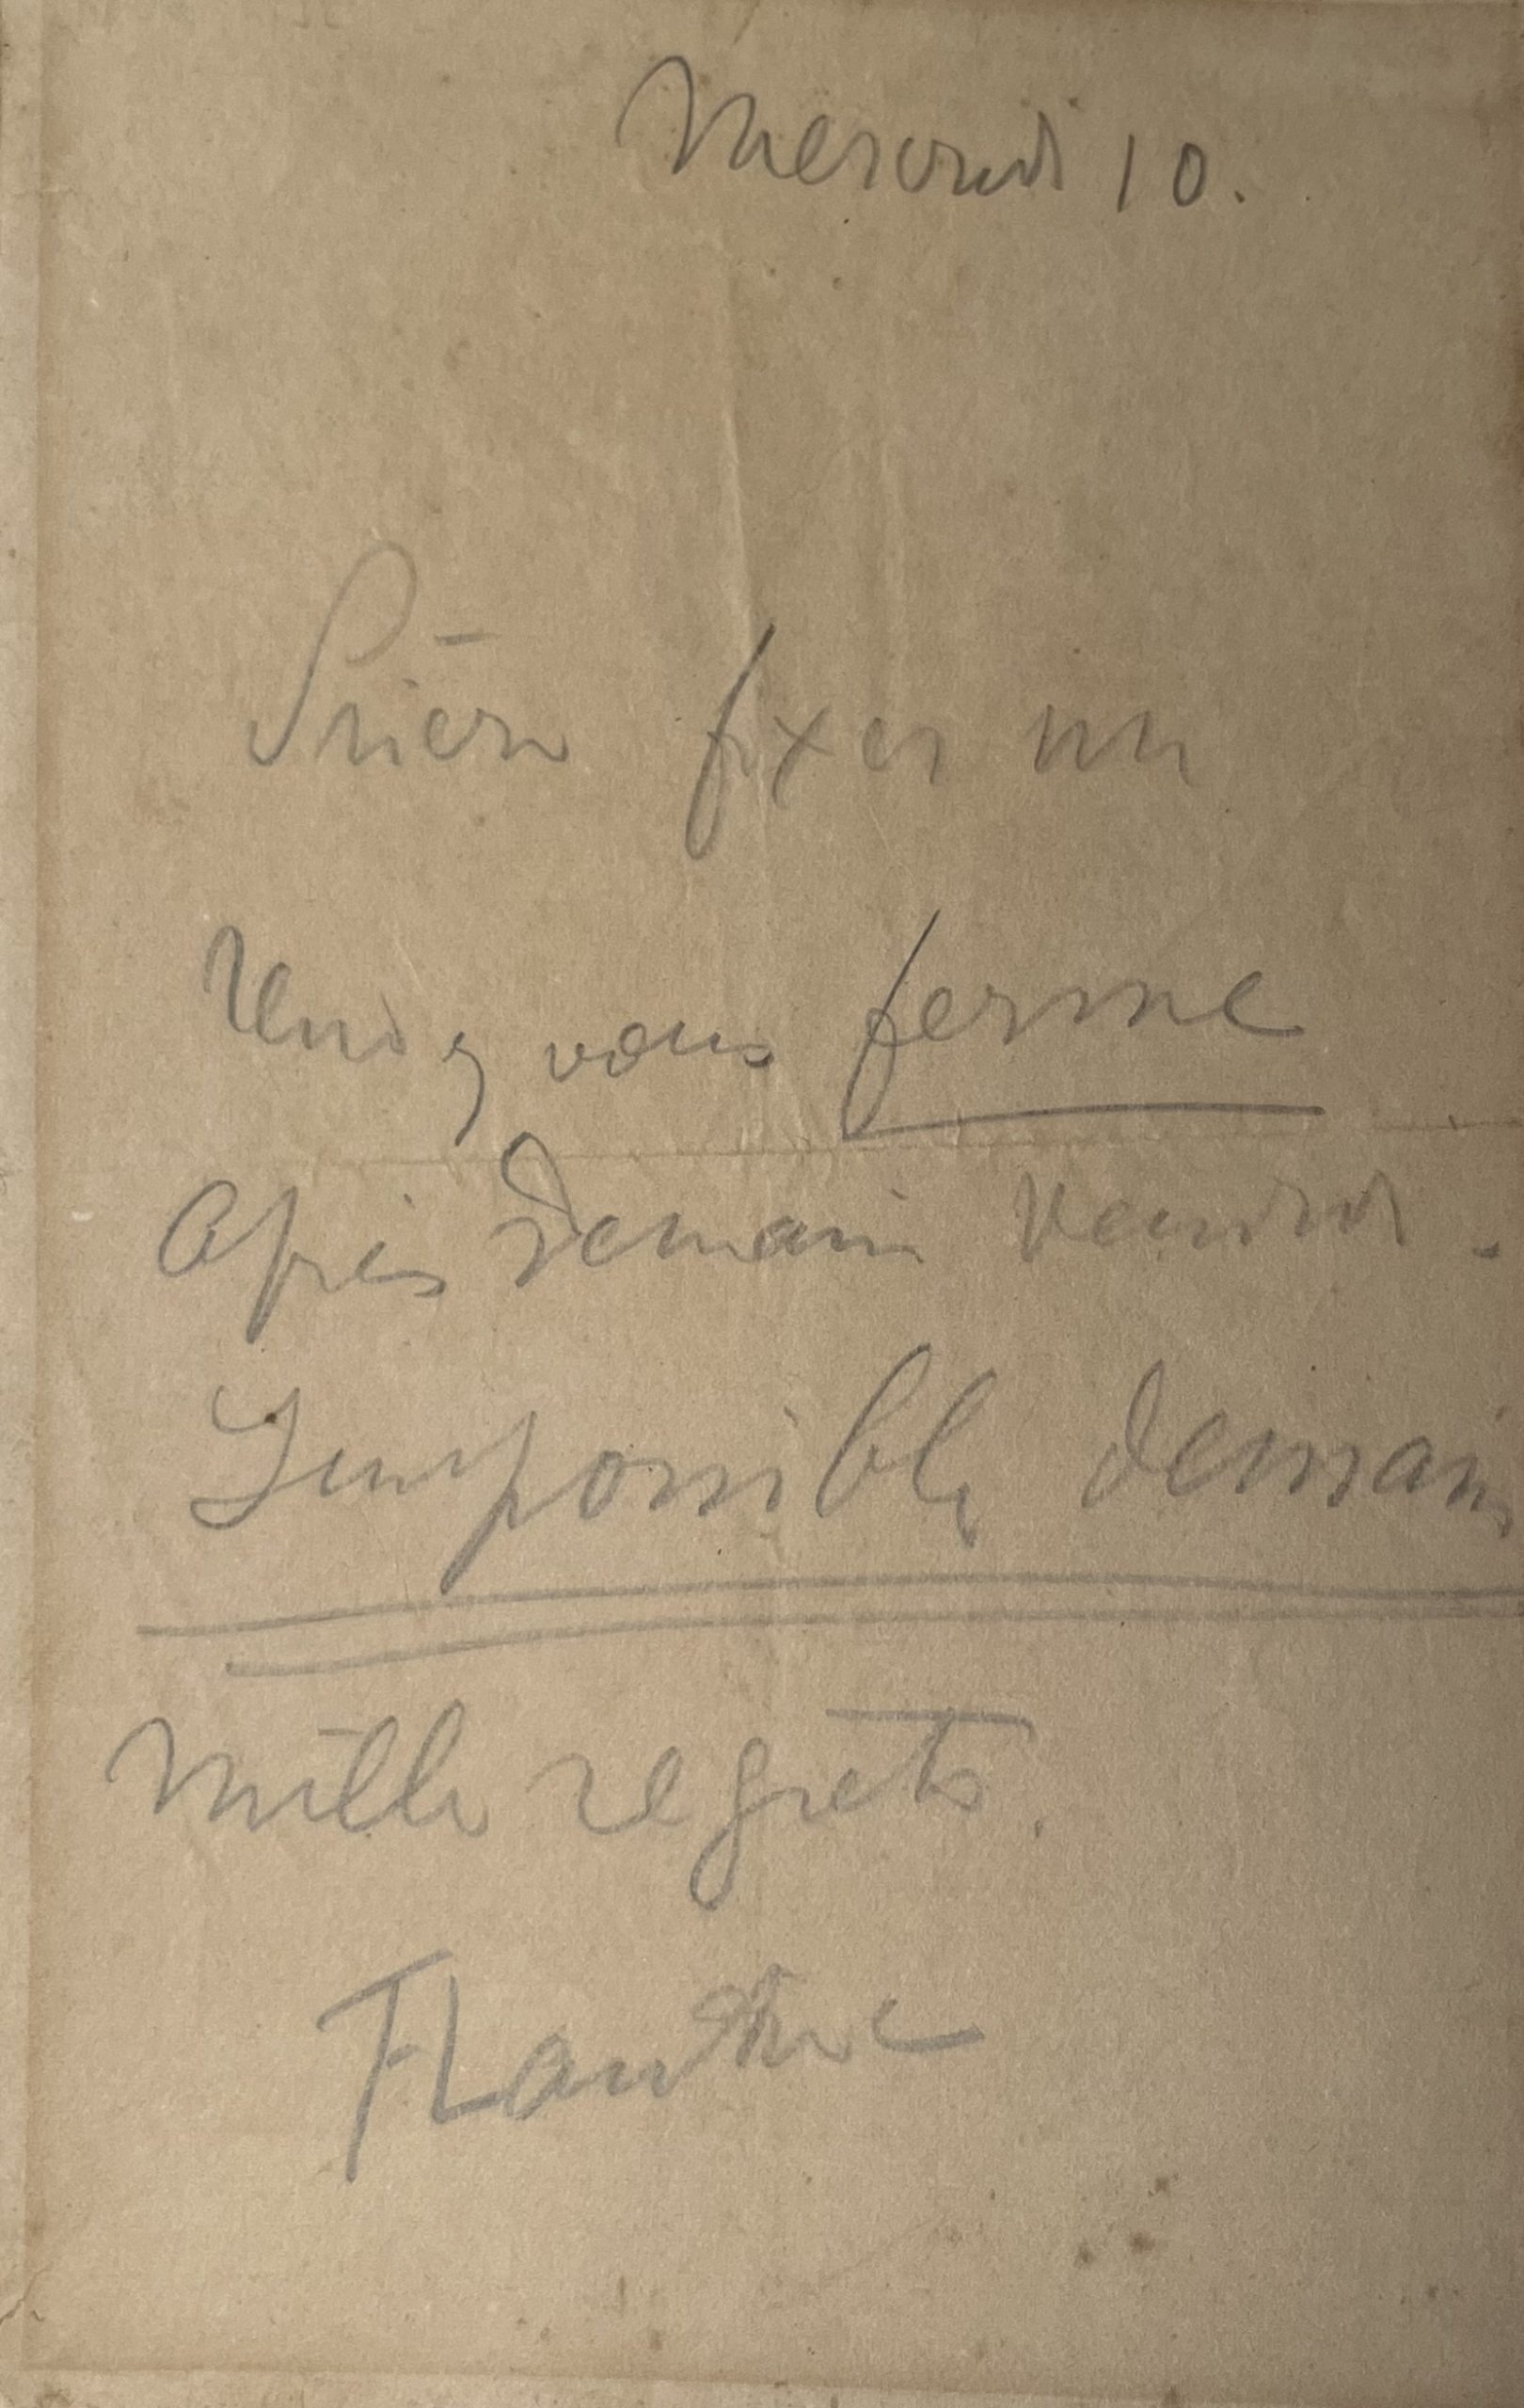 Mercredi 10.
Prière fixer un
rendez vous ferme
après demain vendredi.
Impossible demain
mille regrets.